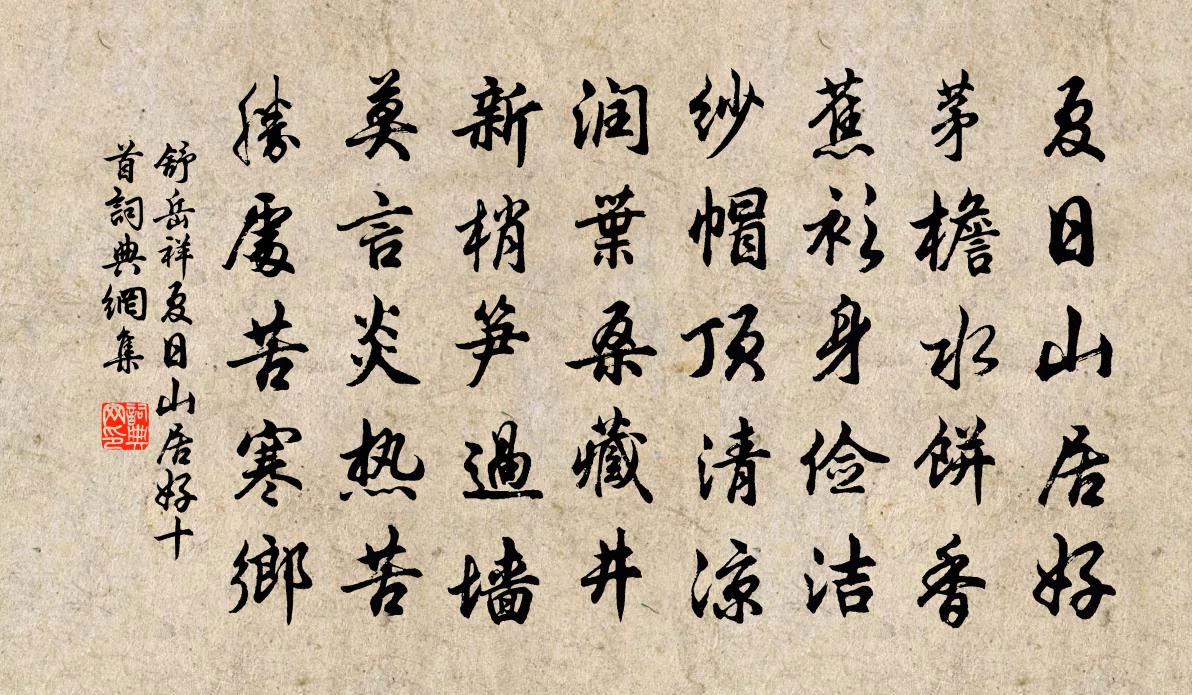 夏日山居好
茅檐水餅香
蕉衫身俭洁
纱帽顶清凉
润葉桑藏井
新梢笋過墙
莫言炎热苦
勝處苦寒鄉
舒岳祥夏日山居好十
首詞典網集
詞典
网印